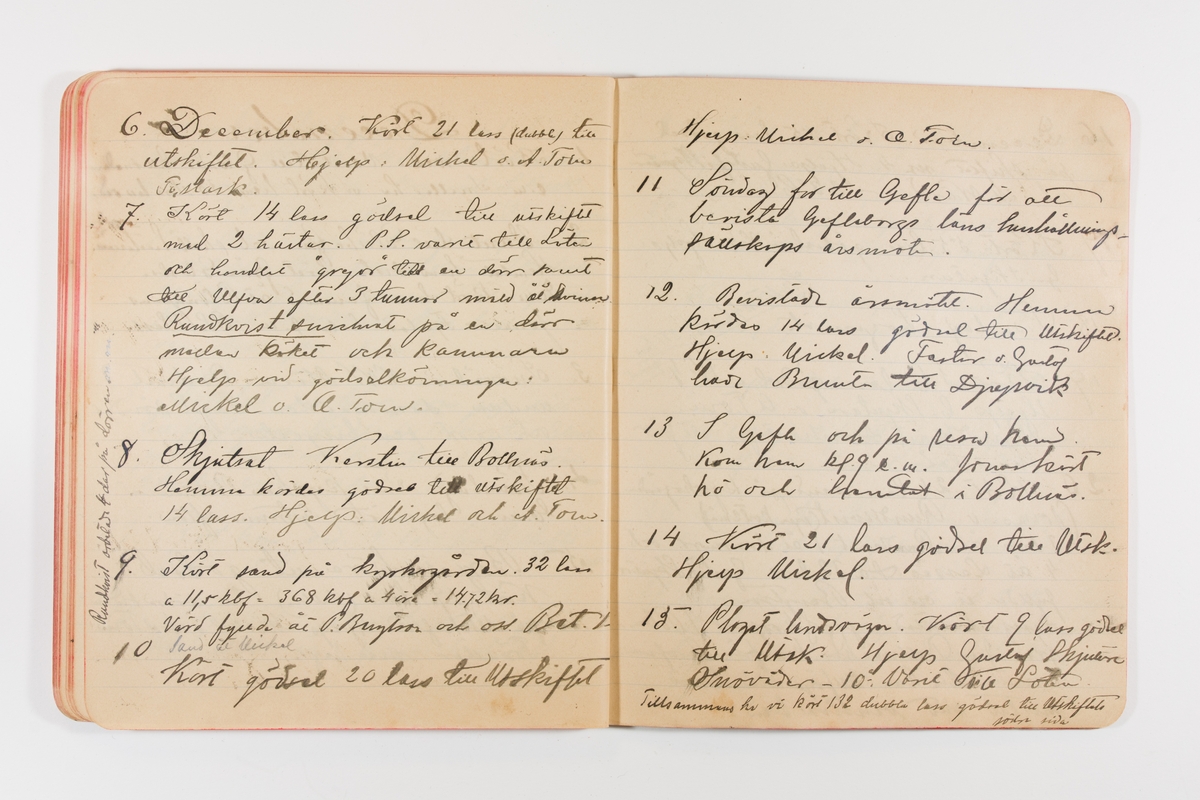 6. December. Kört 21 lass (dubbl.) till
utskiftet. Hjelp: Mickel o. A. Torn
7. Kört 14 lass gödsel till utskiftet
med 2 hästar. P.S. varit till Löten
och handlat "grejor" till en dörr samt
till Ulfva efter 3 tunnor mäld åt svinen
Rundkvist snickrat på en dörr
mellan köket och kammaren
Hjelp vid gödselkörningen:
Mickel o. A. Torn.
8. Skjutsat Kerstin till Bollnäs.
Hemma kördes gödsel till utskiftet
14 lass. Hjelp: Mickel och A. Torn.
9. Kört sand på kyrkogården. 32 lass
a 11,5 kbf = 368 kbf a 4 öre = 14,72 kr.
Värd fyende åt P. och oss. Bet.
Sand åt Mickel
10 Kört gödsel 20 lass till Utskiftet
Rundkvist arbetade 4 dar på dörren
Hjelp: Mickel o. A. Torn.
11 Söndag for till Gefle för att
bevista Gefleborgs läns hushållnings-
sällskaps årsmöte.
12. Bevistade årsmötet. Hemma
kördes 14 lass gödsel till Utskiftet.
Hjelp Mickel. Faster o. Gustaf
hade Brunte till Djupsvik
13 I Gefle och på resa hem.
Kom hem kl. 9 e.m. Jonas kört
hö och hemtat i Bollnäs.
14 Kört 21 lass gödsel till Utsk.
Hjelp Mickel.
15. Plogat landsvägen. Kört 9 lass gödsel
till Utsk. Hjelp Gustaf
Snöväder - 10°. Varit till Löten
Tillsammans ha vi kört 132 dubbla lass gödsel till Utskiftets
södra sida